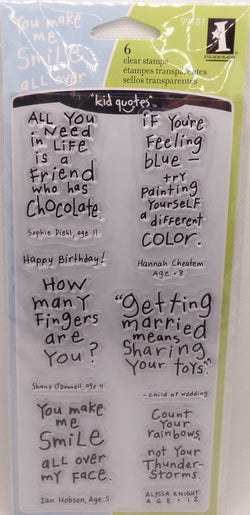 You make
me
Smile
all over
6
clear stamps
étampes transparentes
sellos transparentes
INKADINKADO
"kid quotes"
ALL YOU
in Need
in LiFe
is a
Friend
who has
CHocolate.
Sophie Diehl, age 11
Happy Birthday!
How
many
Fingers
are
You?
Shane O'Donnell, age 4
You make
me
Smile
all over
my Face.
Ian Hobson, Age 5
iF You're
Feeling
blue –
try
Painting
Yourself
a different
COLOR.
Hannah Cheatem
Age • 8
"getting
married
means
Sharing
Your toys."
– child at wedding
Count
Your
rainbows,
not Your
Thunder-
Storms.
ALYSSA KNIGHT
AGE • 12